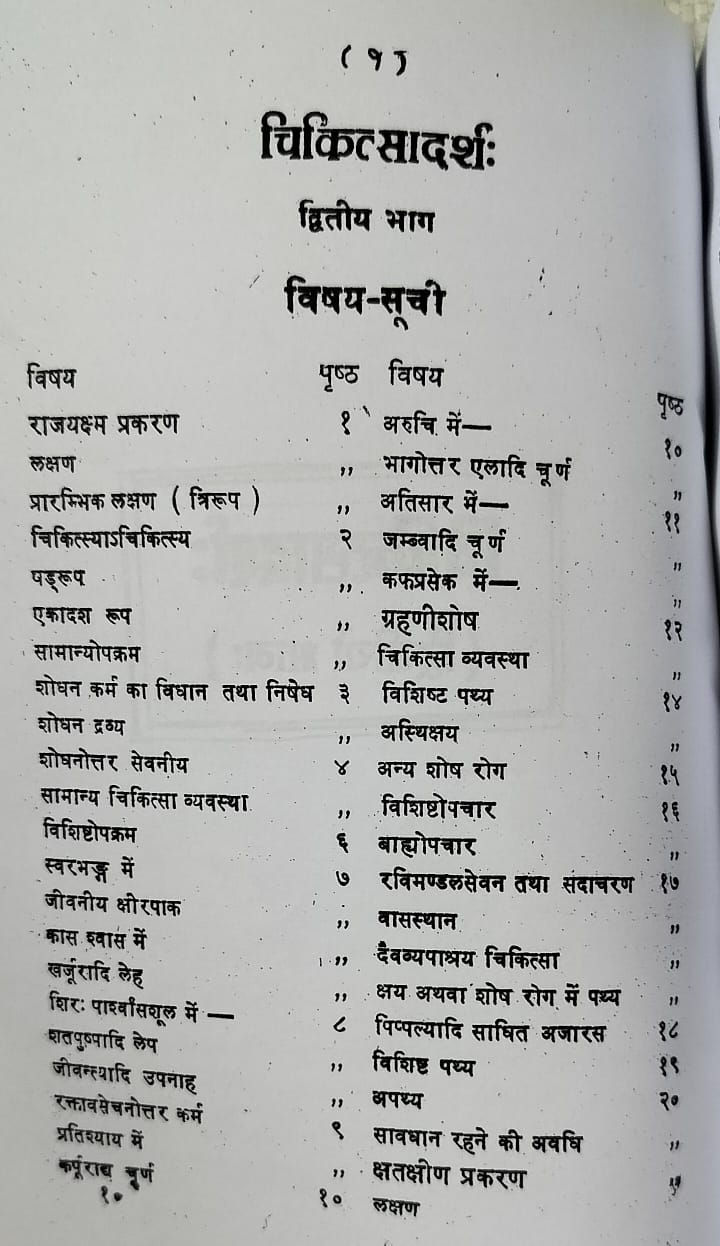 ( १ )
चिकित्सादर्शः
द्वितीय भाग
विषय-सूची
विषय पृष्ठ
राजयक्ष्म प्रकरण १
लक्षण ,,
प्रारम्भिक लक्षण ( त्रिरूप ) ,,
चिकित्स्याऽचिकित्स्य २
षड्रूप ,,
एकादश रूप ,,
सामान्योपक्रम ,,
शोधन कर्म का विधान तथा निषेध ३
शोधन द्रव्य ,,
शोधनोत्तर सेवनीय ४
सामान्य चिकित्सा व्यवस्था ,,
विशिष्टोपक्रम ६
स्वरभङ्ग में ७
जीवनीय क्षीरपाक ,,
कास श्वास में ,,
खर्जूरादि लेह ,,
शिरः पार्श्वांसशूल में — ८
शतपुष्पादि लेप ,,
जीवन्त्यादि उपनाह ,,
रक्तावसेचनोत्तर कर्म ९
प्रतिश्याय में ,,
कर्पूराद्य चूर्ण १०
१०
विषय पृष्ठ
अरुचि में— १०
भागोत्तर एलादि चूर्ण ,,
अतिसार में— ११
जम्ब्वादि चूर्ण ,,
कफप्रसेक में— ,,
ग्रहणीशोष १२
चिकित्सा व्यवस्था ,,
विशिष्ट पथ्य १४
अस्थिक्षय ,,
अन्य शोष रोग १५
विशिष्टोपचार १६
बाह्योपचार ,,
रविमण्डलसेवन तथा सदाचरण १७
वासस्थान ,,
दैवव्यपाश्रय चिकित्सा ,,
क्षय अथवा शोष रोग में पथ्य ,,
पिप्पल्यादि साधित अजारस १८
विशिष्ट पथ्य १९
अपथ्य २०
सावधान रहने की अवधि ,,
क्षतक्षीण प्रकरण ,,
लक्षण